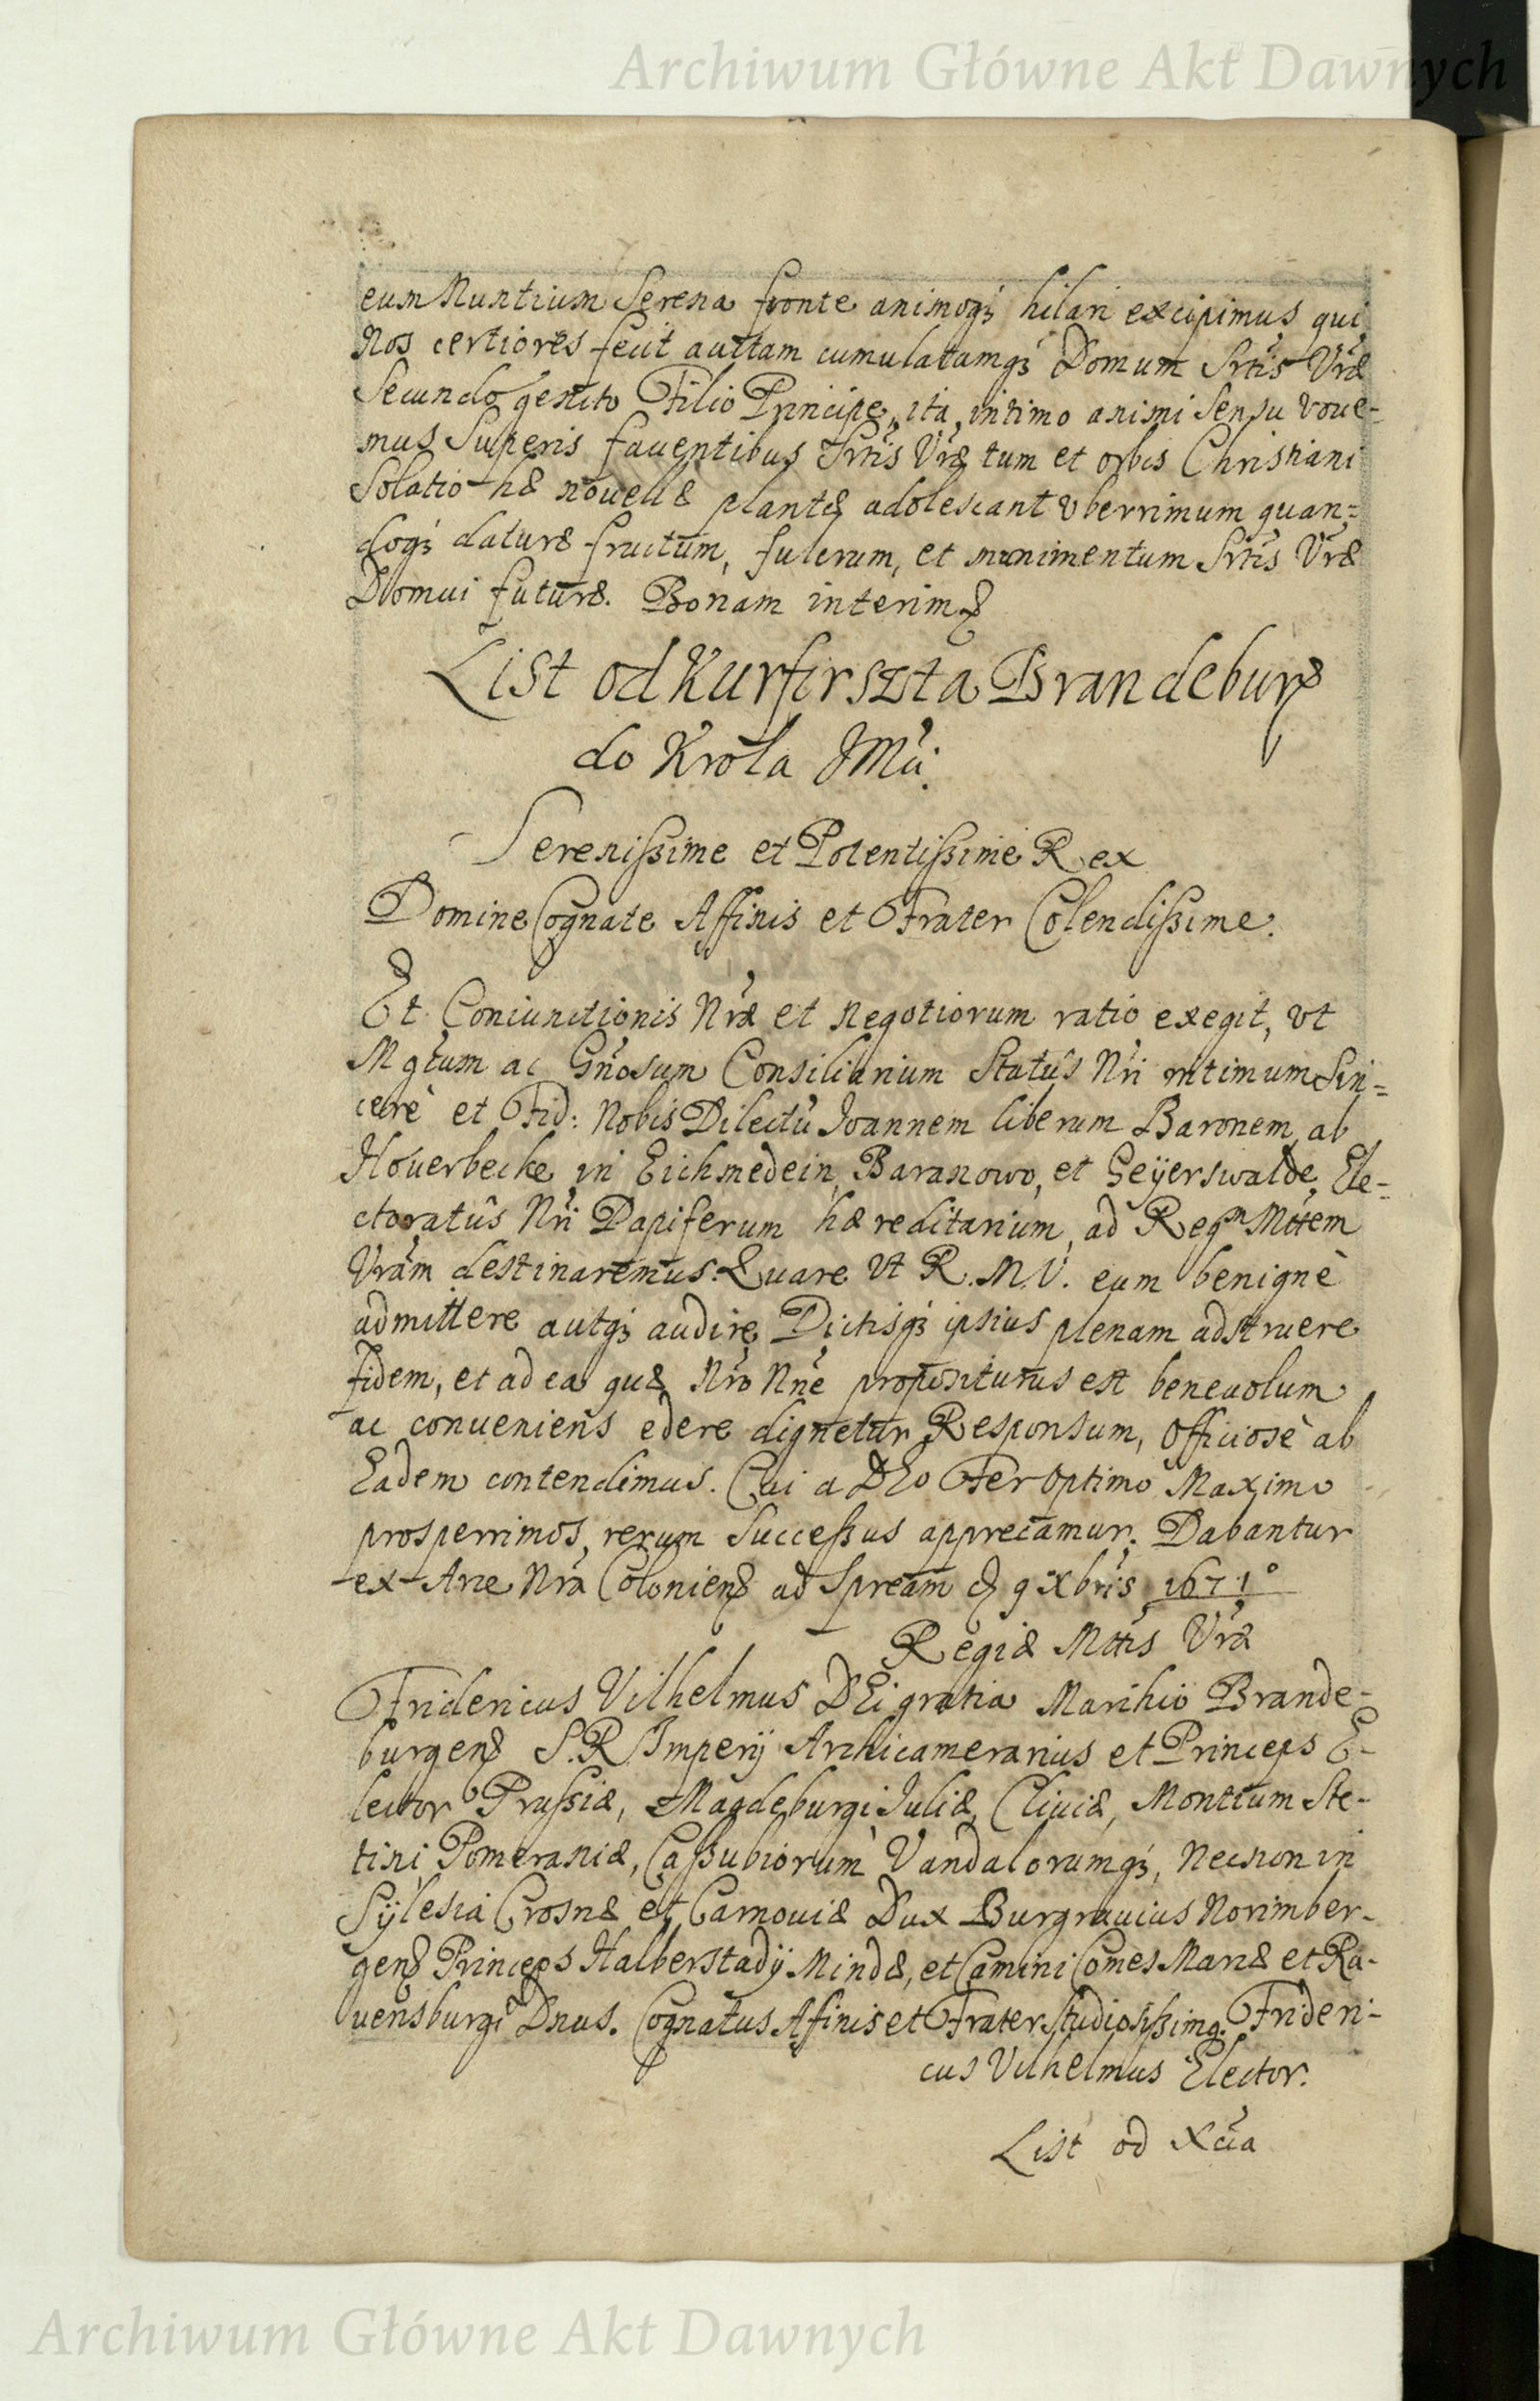 Archiwum Główne Akt Dawnych
eum Nuntium Serena fronte animoq₃ hilari excipimus qui
Nos certiores fecit auctam cumulatamq₃ Domum Srtis Vræ
Secundo genito Filio Principe, ita intimo animi Sensu voue-
mus Superis fauentibus Srtis Vræ tum et orbis Christiani
Solatio hæ nouellæ plantæ adolescant vberrimum quan-
doq₃ daturæ fructum, fulcrum, et munimentum Srtis Vræ
Domui futuræ. Bonam interim &
List od Kurfirszta Brandebur
do Krola JMci.
Serenissime et Potentissime Rex
Domine Cognate Affinis et Frater Colendissime.
Et Coniunctionis Nræ et Negotiorum ratio exegit, vt
Mgcum ac Gnosum Consiliarium Statûs Nri intimum Sin-
cerè et Fid: Nobis Dilectu Joannem liberum Baronem ab
Houerbecke in Eichmedein, Baranowo, et Geÿerswalde, Ele-
ctoratûs Nri Dapiferum hæreditarium, ad Regm Mttem
Vram destinaremus. Quare vt R. M. V. eum benignè
admittere autq₃ audire Dictisq₃ ipsius plenam adstruere
fidem, et ad ea quæ Nro Nne propositurus est beneuolum
ac conueniens edere dignetur Responsum, Officiosè ab
Eadem contendimus. Cui a DEo Ter Optimo Maximo
prosperrimos rerum Successus apprecamur. Dabantur
ex Arce Nra Coloniens ad Spream d 9 Xbris 1671°
Regiæ Mttis Vræ
Fridericus Vilhelmus DEi gratia Marchio Brande-
burgens S. R. Imperij Archicamerarius et Princeps E-
lector Prussiæ, Magdeburgi Juliæ, Cliuiæ, Montium Ste-
tini Pomeraniæ, Cassubiorum Vandalorumq₃, Necnon in
Sÿlesia Crosnæ et Carnouiæ Dux Burgrauius Norimber-
gens Princeps Halberstadÿ Mindæ, et Camini Comes Marcæ et Ra-
uensburgi Dnus. Cognatus Afinis et Frater Studiosissimq. Frideri-
cus Vilhelmus Elector.
List od Xcia
Archiwum Główne Akt Dawnych